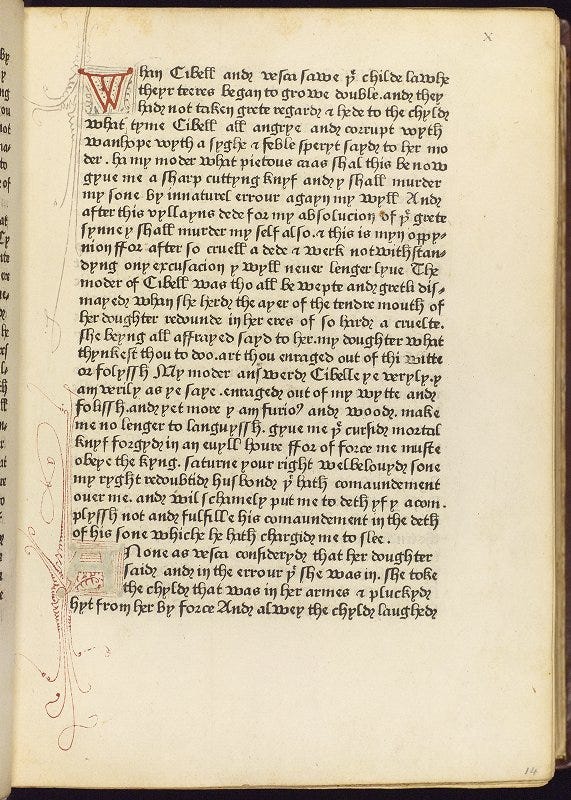 X
Whan Cibell and vesca sawe yͤ childe lawhe
theyr teeres began to growe double. and they
had not taken grete regard & hede to the chyld
what tyme Cibell all angrye and corrupt wyth
wanhope wyth a syghe & feble speryt sayd to her mo
der . ha my moder what pietous caas shal this be now
gyue me a sharp cuttyng knyf and y shall murder
my sone by innaturel errour agayn my wyll And
after this vyllayns dede for my absolucion of yͤ grete
synne y shall murder my self also. & this is myn oppy-
nion ffor after so cruell a dede & werk notwithstan-
dyng ony excusacion y wyll neuer lenger lyue The
moder of Cibell was tho all be wepte and gretli dis-
mayed whan she herd the ayer of the tendre mouth of
her doughter redounde in her eres of so hard a cruelte.
she beyng all affrayed sayd to her. my doughter what
thynkest thou to doo. art thou enraged out of thi witte
or folyssh My moder answerd Cibelle ye veryly. y
am verily as ye saye . enraged out of my wytte and
folissh. and yet more y am furioꝰ and wood. make
me no lenger to languyssh. gyue me yͤ cursid mortal
knyf forgyd in an euyll houre ffor of force me muste
obeye the kyng. saturne your right welbelouyd sone
my ryght redoubtid husbond y hath comaundement
ouer me. and wil schamely put me to deth yf y acom.
plyssh not and fulfille his comaundement in the deth
of his sone whiche he hath chargid me to slee .
ANone as vesca consideryd that her doughter
said and in the errour yͭ she was in. she toke
the chyld that was in her armes & pluckyd
hyt from her by force And alwey the chyld laughed
14